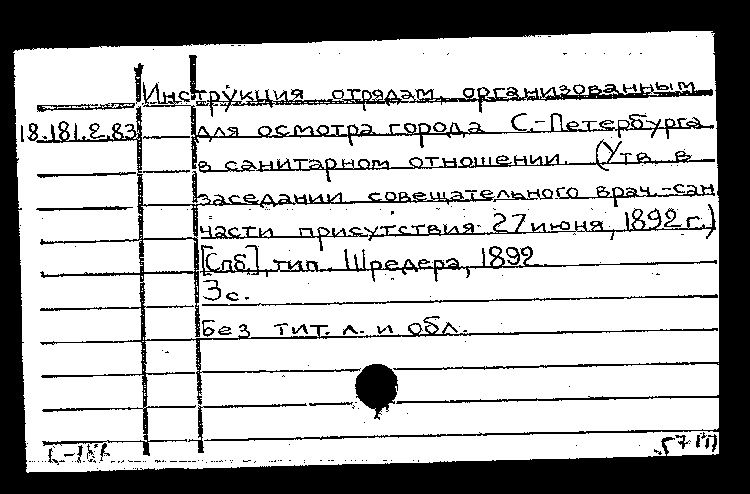 Инструкция отрядам, организованным
18.181.2.83 для осмотра города С.-Петербурга
в санитарном отношении. (Утв. в
заседании совещательного врач.-сан.
части присутствия 27 июня, 1892 г.)
[Спб.], тип. Шредера, 1892.
3 с.
Без тит. л. и обл.